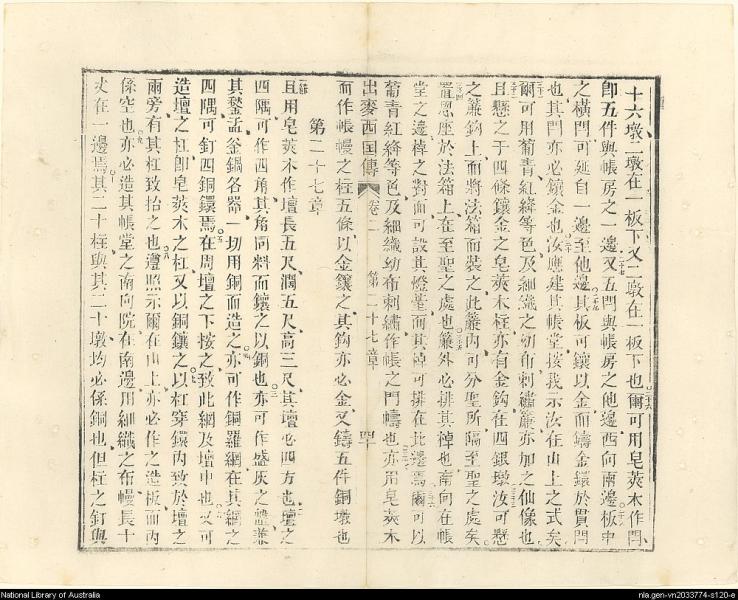 十六墩二墩在一板下又二墩在一板下也爾可用皂莢木作閂
卽五件與帳房之一邊又五閂與帳房之他邊西向兩邊板中
之橫閂可延自一邊至他邊其板可鑲以金而鑄金鐶於貫閂
也其閂亦必鑲金也汝應建其帳堂按我示汝在山上之式矣
爾可用葡青紅絳等色及細織之幼布刺繡簾亦加之仙像也
且懸之于四條鑲金之皂莢木柱亦有金鈎在四銀墩汝可懸
之簾鈎上而將法箱而裝之此簾內可分聖所隔至聖之處矣
置恩座於法箱上在至聖之處也簾外必排其棹也南向在帳
堂之邊棹之對面可設其燈臺而其棹可排在北邊焉爾可以
葡青紅絳等色及細織幼布刺繡作帳之門幬也亦用皂莢木
出麥西国傳 卷二 第二十七章
而作帳幔之柱五條以金鑲之其鈎亦必金又鑄五件銅墩也
第二十七章
且用皂莢木作壇長五尺濶五尺高三尺其壇必四方也壇之
四隅可作四角其角同料而鑲之以銅也亦可作盛灰之
其盂釜鍋各器一切用銅而造之亦可作銅羅網在其網之
四隅可釘四銅鐶焉在周壇之下按之致此網及壇中也又可
造壇之杠卽皂莢木之杠又以銅鑲之以杠穿鐶內致於壇之
兩旁有其杠致抬之也遵照示爾在山上亦必作之造板而內
係空也亦必造其帳堂之南向院在南邊用細織之布幔長十
丈在一邊焉其二十柱與其二十墩均必係銅也但柱之釘與
National Library of Australia
nla.gen-vn2033774-s120-e